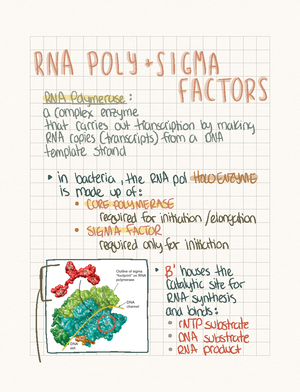 RNA POLY + SIGMA
FACTORS
RNA Polymerase:
a complex enzyme
that carries out transcription by making
RNA copies (transcripts) from a DNA
template strand
▸ in bacteria, the RNA pol HOLOENZYME
is made up of:
• CORE POLYMERASE
required for initiation/elongation
• SIGMA FACTOR
required only for initiation
Outline of sigma
"footprint" on RNA
polymerase
DNA
channel
DNA
exit
▸ B' houses the
catalytic site for
RNA synthesis
and binds:
• rNTP substrate
• DNA substrate
• RNA product